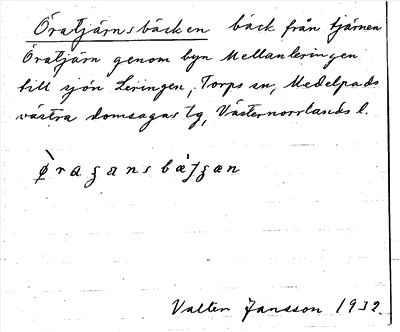 Öratjärnsbäcken bäck från tjärnen
Öratjärn genom byn Mellanleringen
till sjön Leringen, Torps sn, Medelpads
västra domsagas tg, Västernorrlands l.
Valter Jansson 1932.